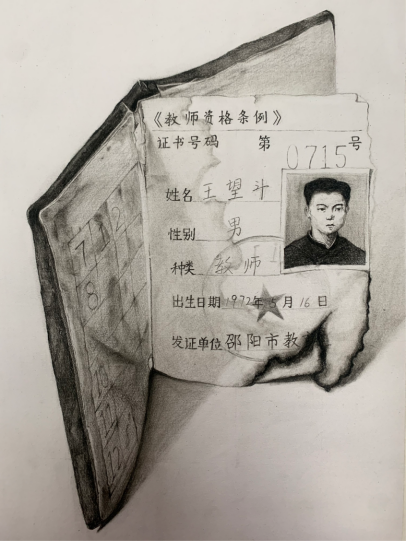 《教师资格条例》
证书号码 第0715号
姓名 王望斗
性别 男
种类 教师
出生日期 1972年5月16日
发证单位 邵阳市教
7 2
8